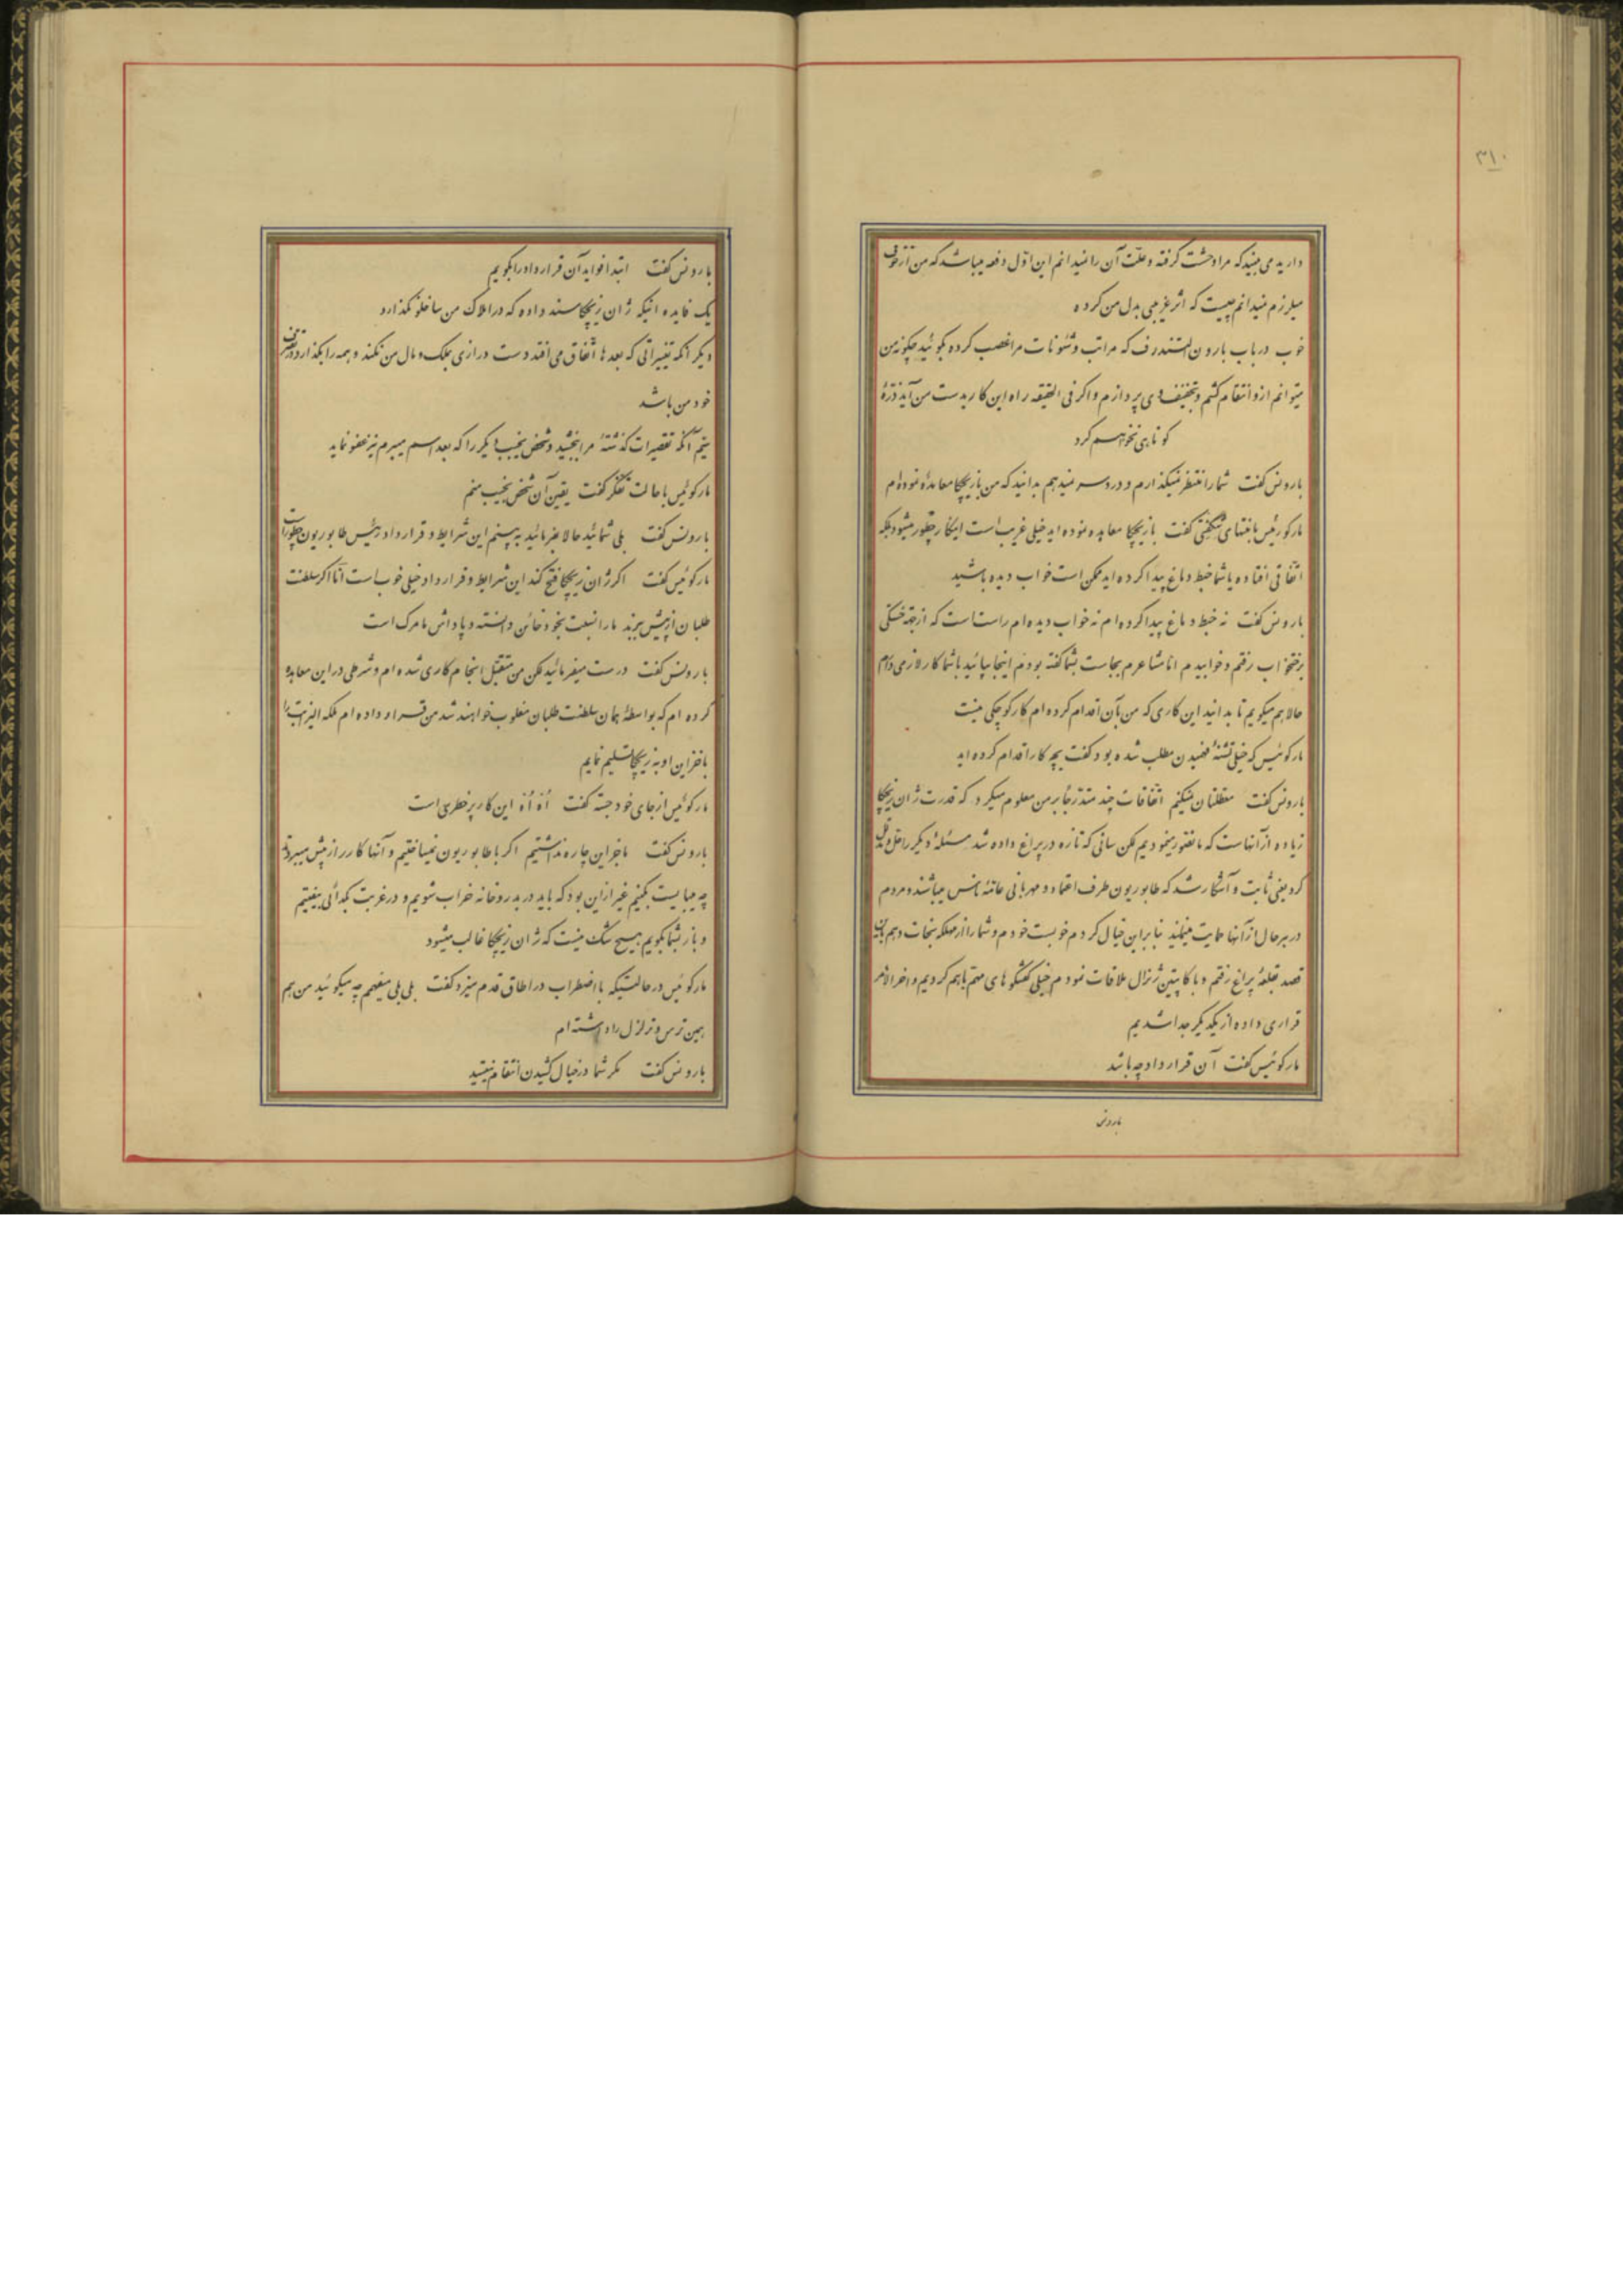 ۳۱۰
دارید می بینید که مرا وحشت گرفته و علّت آن را نمیدانم این اوّل دفعه میباشد که من از خوف
میلرزم نمیدانم چیست که اثر غریبی بدل من کرده
خوب در باب بارون الستندرف که مراتب و شئونات مرا غصب کرده بگوئید چگونه من
میتوانم ازو انتقام کشم و بتخفیف وی پردازم و اگر فی الحقیقه راه این کار بدست من آید ذرّهٔ
کوتاهی نخواهم کرد
بارونس گفت شما را منتظر نمیگذارم و دردسر نمیدهم بدانید که من با زیچکا معاهده نموده‌ام
مارکوئیس با منتهای شگفتی گفت با زیچکا معاهده نموده اید خیلی غریب است اینکار چطور میشود بلکه
اتفاقی افتاده یا شما خبط دماغ پیدا کرده اید ممکن است خواب دیده باشید
بارونس گفت نه خبط دماغ پیدا کرده ام نه خواب دیده ام راست است که از جهة خستگی
برختخواب رفتم و خوابیدم امّا مشاعرم بجاست بشما گفته بودم اینجا بیائید باشما کار لازمی دارم
حالا هم میگویم تا بدانید این کاری که من بآن اقدام کرده ام کار کوچکی نیست
مارکوئیس که خیلی تشنهٔ فهمیدن مطلب شده بود گفت بچه کار اقدام کرده اید
بارونس گفت معطلتان نمیکنم اتفاقات چند متدرّجاً بر من معلوم میکرد که قدرت ژان زیچکا
زیاده از آنهاست که ما تصور مینمودیم لکن سانی که تازه در پراغ داده شد مسئلهٔ دیگر را حل و مدلّل
کرد یعنی ثابت و آشکار شد که طابوریون طرف اعتماد و مهربانی عامّهٔ ناس میباشند و مردم
در هر حال از آنها حمایت مینمایند بنابراین خیال کردم خوبست خودم و شما را از مهلکه نجات دهم باین
قصد بقلعهٔ پراغ رفتم و با کاپیتن ژنرال ملاقات نمودم خیلی گفتگوهای مهّم باهم کردیم و اخر الامر
قراری داده از یکدیگر جدا شدیم
مارکوئیس گفت آن قرار داد چه باشد
بارونس
بارونس گفت ابتدا فواید آن قرارداد را بگویم
یک فایده اینکه ژان زیچکا سند داده که در املاک من ساخلو نگذارد
دیگر انکه تغییراتی که بعدها اتّفاق می افتد دست درازی بملک و مال من نکند و همه را بگذارد در تصرّف
خود من باشد
سیّم آنکه تقصیرات گذشتهٔ مرا ببخشید و شخص نجیب دیگر را که بعد اسم میبرم نیز عفو نماید
مارکوئیس باحالت تفکّر گفت یقین آن شخص نجیب منم
بارونس گفت بلی شمائید حالا بفرمائید به بینم این شرایط و قرارداد رئیس طابوریون چطور است
مارکوئیس گفت اگر ژان زیچکا فتح کند این شرایط و قرارداد خیلی خوب است امّا اگر سلطنت
طلبان از پیش برند ما را نسبت بخود خائن دانسته و پاداش ما مرگ است
بارونس گفت درست میفرمائید لکن من متقبّل انجام کاری شده ام و شرطی در این معاهده
کرده ام که بواسطهٔ همان سلطنت طلبان مغلوب خواهند شد من قرار داده ام ملکه الیزابت را
با خزاین او به زیچکا تسلیم نمایم
مارکوئیس از جای خود جسته گفت اُه اُه این کار پر خطری است
بارونس گفت ما جز این چاره نداشتیم اگر با طابوریون نمیساختیم و آنها کار را از پیش میبردند
چه میبایست بکنیم غیر از این بود که باید در بدر و خانه خراب شویم و در غربت بگدائی بیفتیم
و باز بشما بگویم هیچ شک نیست که ژان زیچکا غالب میشود
مارکوئیس در حالتیکه با اضطراب در اطاق قدم میزد گفت بلی بلی میفهمم چه میگوئید من هم
همین ترس و تزلزل را داشته ام
بارونس گفت مگر شما در خیال کشیدن انتقام نیستید